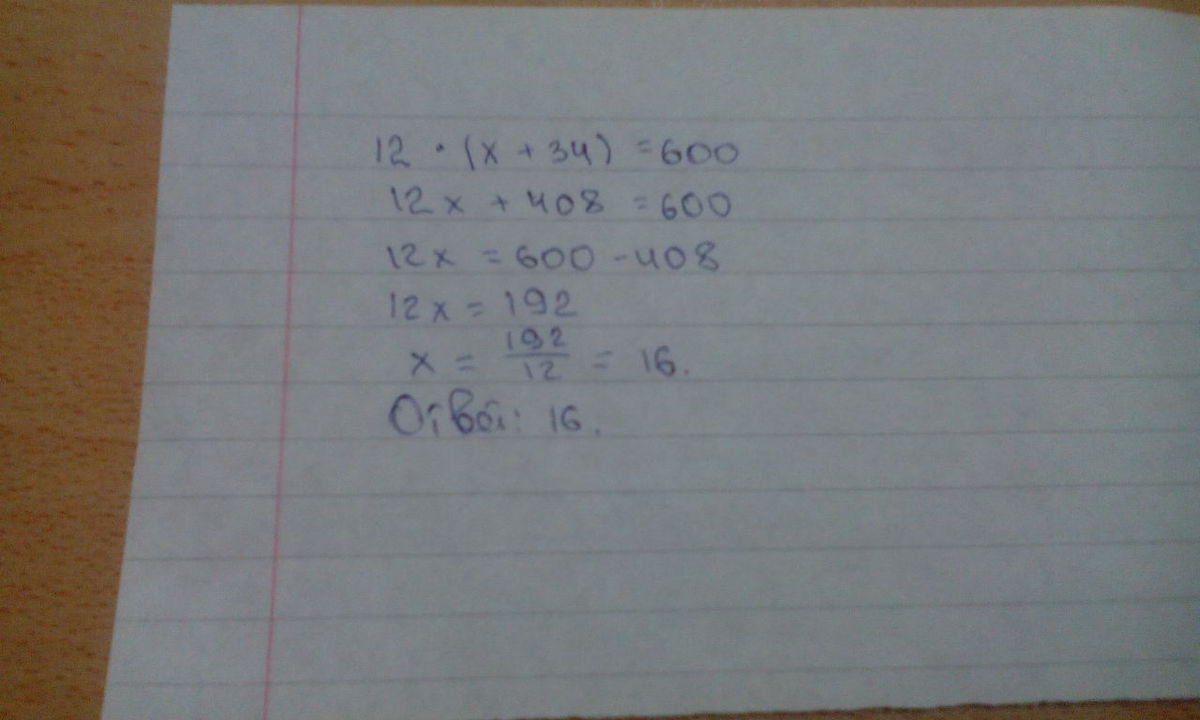 12 · (x + 34) = 600
12x + 408 = 600
12x = 600 - 408
12x = 192
x = 192/12 = 16.
Ответ: 16.